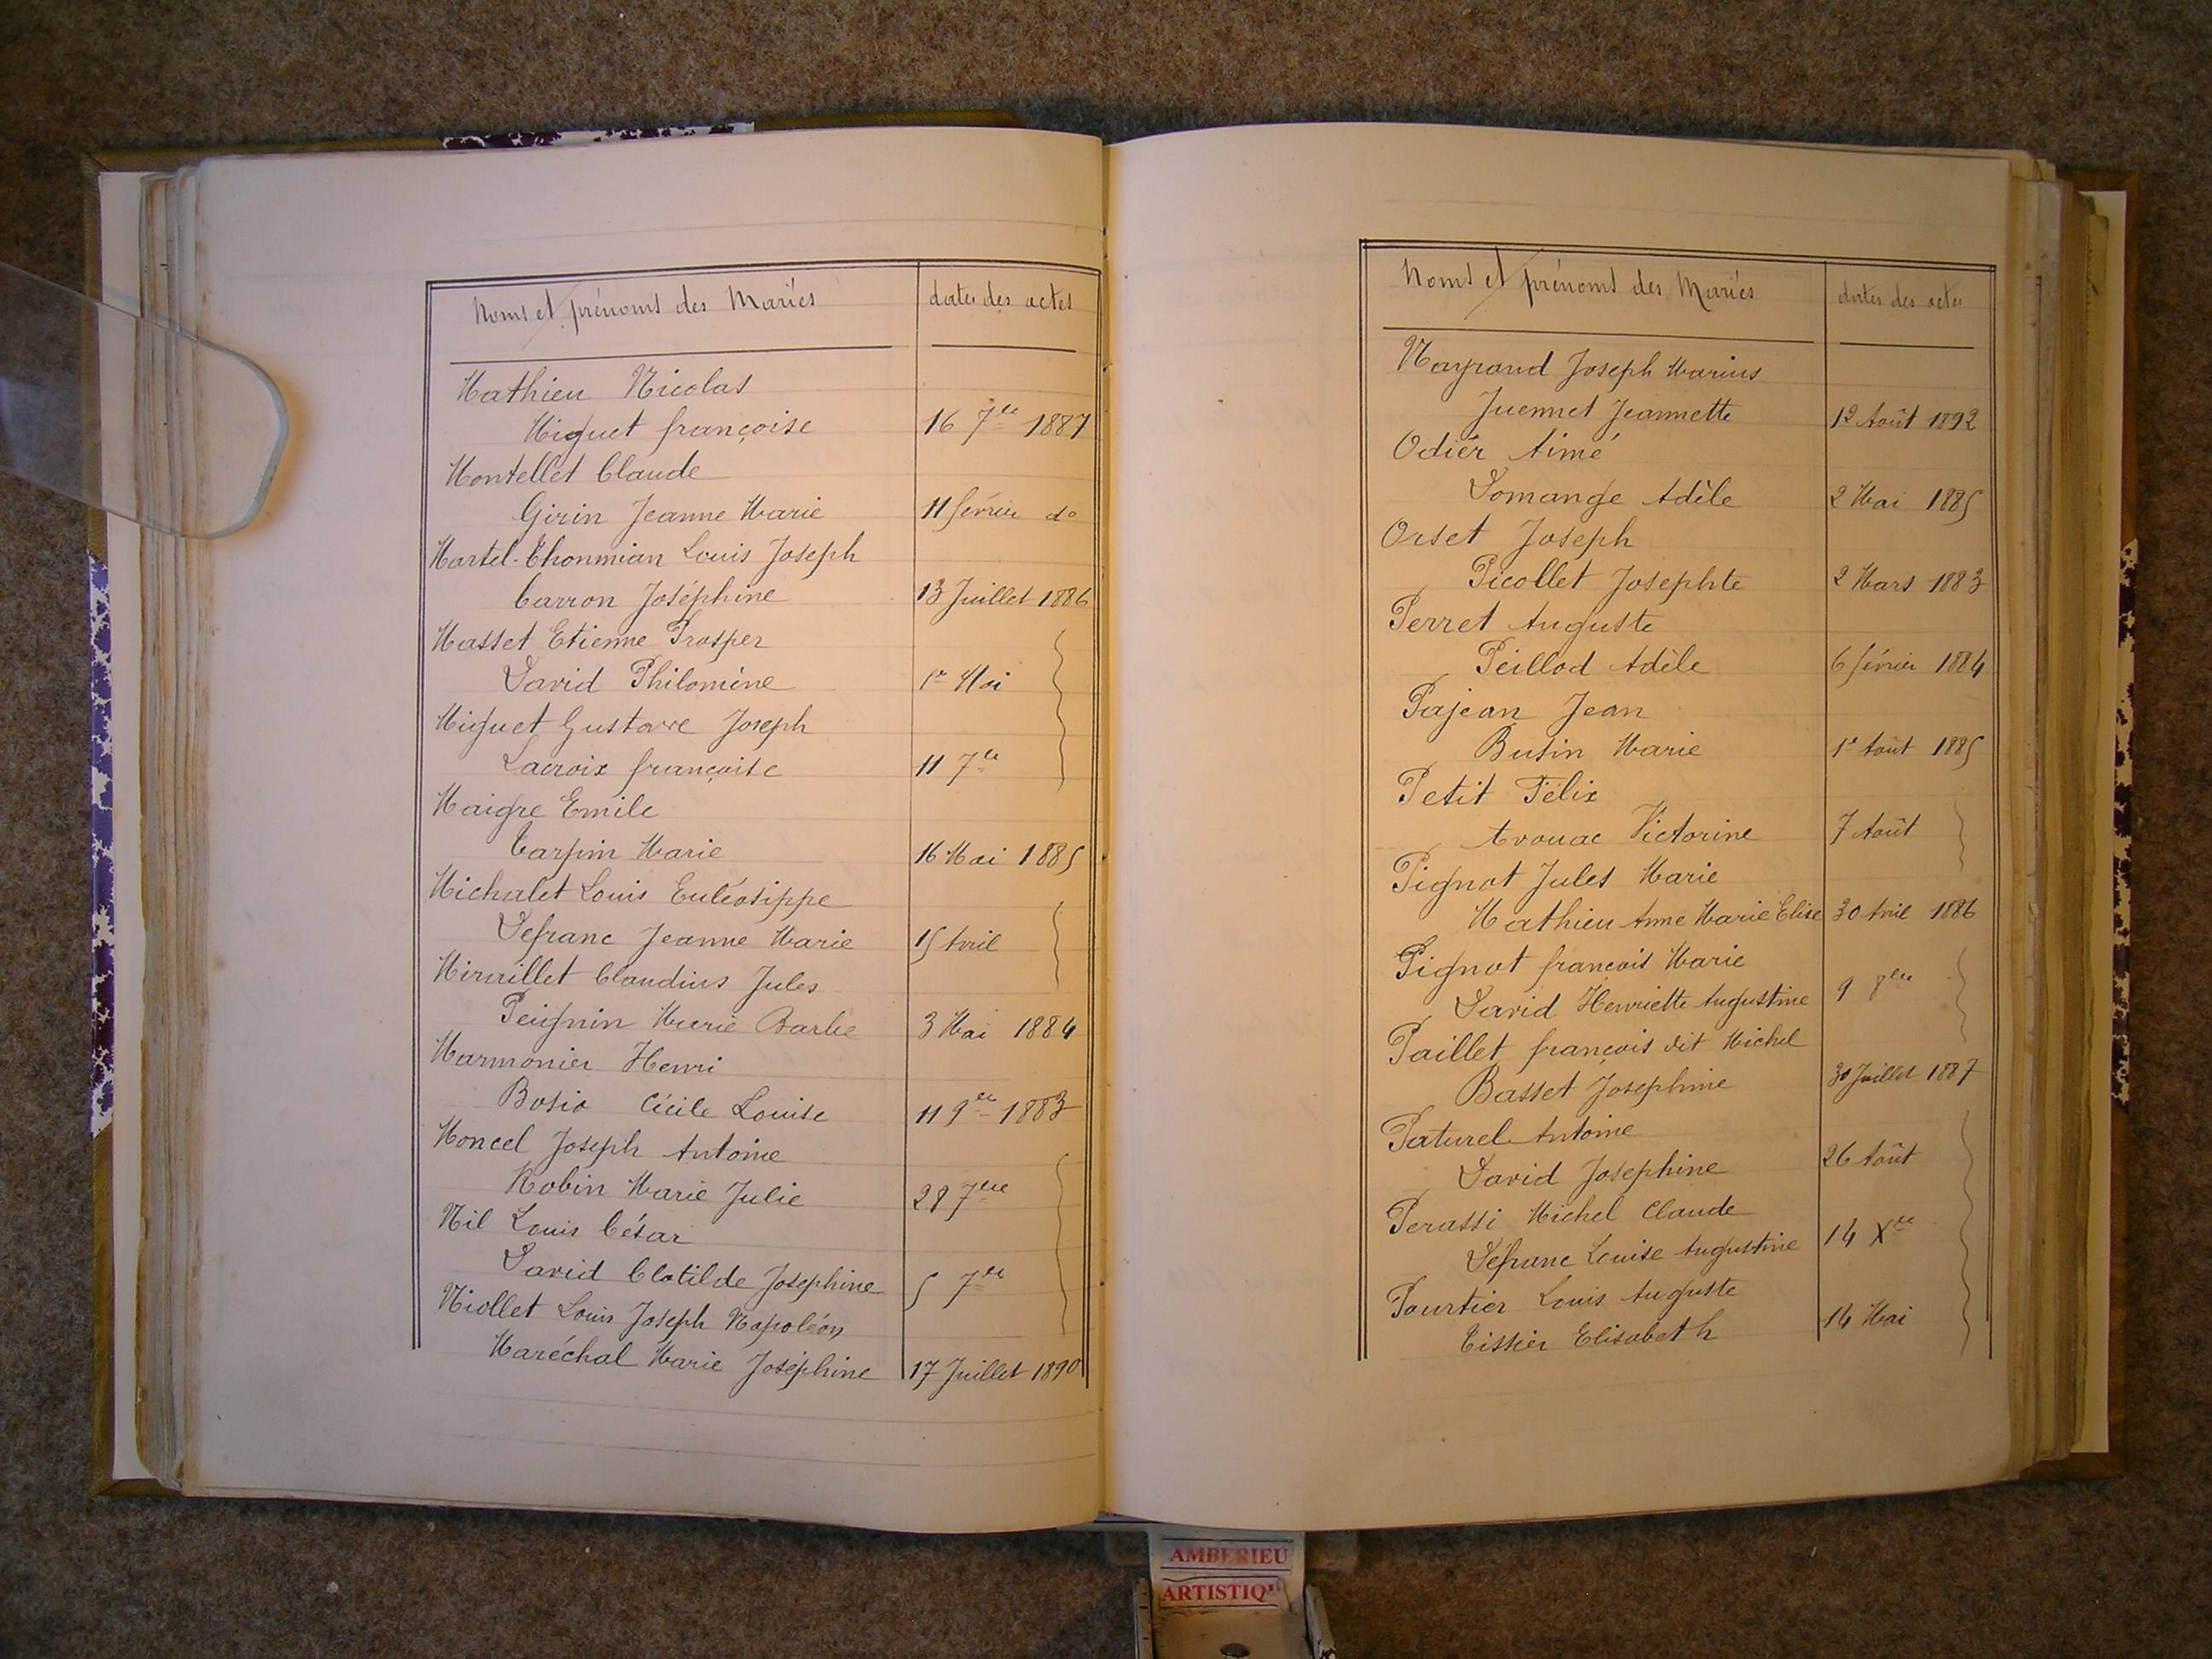 Noms et prénoms des Mariés dates des actes
Mathieu Nicolas
Miguet françoise 16 7bre 1887
Montellet Claude
Girin Jeanne Marie 11 février do
Martel-Thonmian Louis Joseph
Carron Joséphine 13 Juillet 1886
Masset Etienne Prosper
David Philomène 1er Mai
Miguet Gustave Joseph
Lacroix françoise 11 7bre
Maigre Emile
Carpin Marie 16 Mai 1885
Michalet Louis Euléosippe
Defranc Jeanne Marie 15 Avril
Miraillet Claudius Jules
Peignin Marie Barbe 3 Mai 1884
Marmonier Henri
Bosio Cécile Louise 11 9bre 1883
Moncel Joseph Antoine
Robin Marie Julie 28 7bre
Nil Louis César
David Clotilde Josephine 5 7bre
Niollet Louis Joseph Napoléon
Maréchal Marie Joséphine 17 Juillet 1890
Noms et prénoms des Mariés dates des actes
Nayrand Joseph Marius
Juennet Jeannette 12 Août 1892
Odier Aimé
Domange Adèle 2 Mai 1885
Orset Joseph
Picollet Josephte 2 Mars 1883
Perret Auguste
Peillod Adèle 6 février 1884
Pajean Jean
Busin Marie 1er Août 1885
Petit Félix
Avouac Victorine 7 Août
Pignot Jules Marie
Mathieu Anne Marie Elise 30 Avril 1886
Pignot françois Marie
David Henriette Augustine 9 8bre
Paillet françois dit Michel
Basset Josephine 30 Juillet 1887
Paturel Antoine
David Josephine 26 Août
Perassi Michel Claude
Defranc Louise Augustine 14 Xbre
Pourtier Louis Auguste
Tissier Elisabeth 14 Mai
AMBERIEU
ARTISTIQ